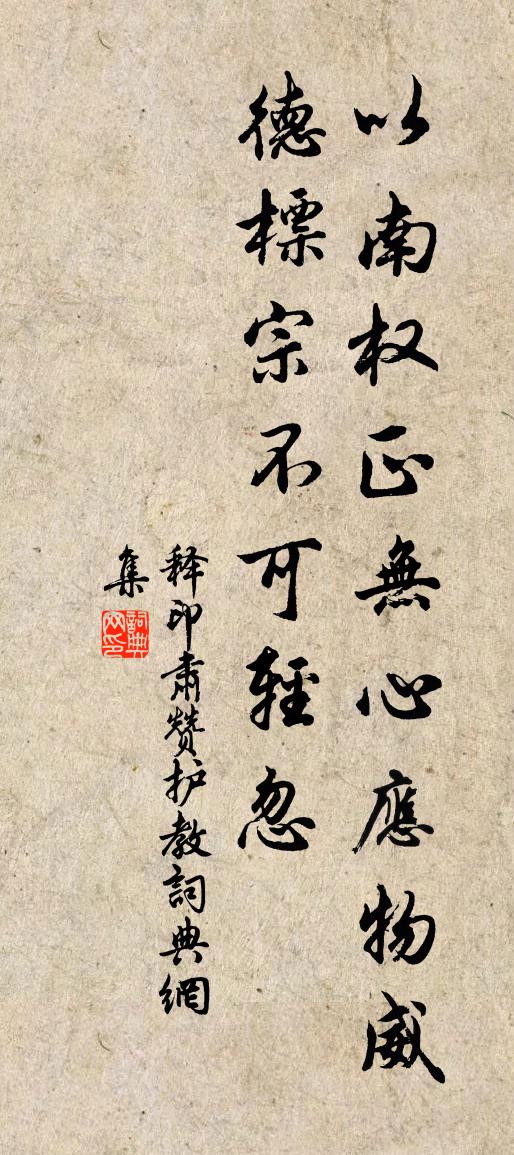 以南权正無心應物威
德標宗不可輕忽
释印肅赞护教詞典網
集
詞典
网印